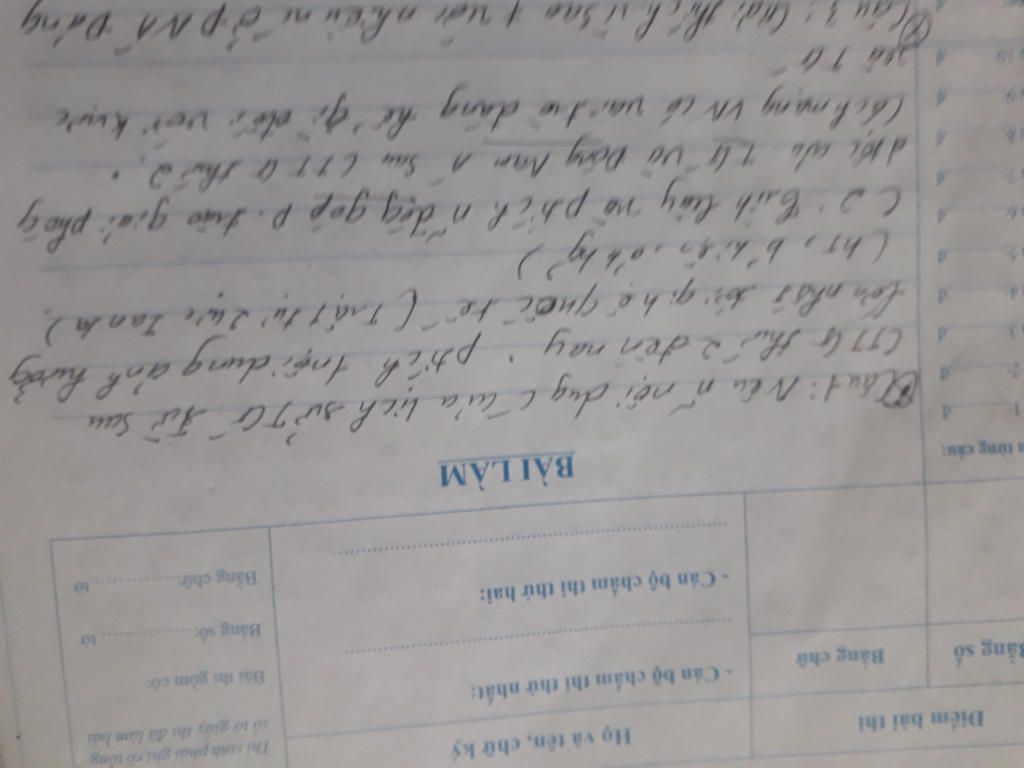 Điểm bài thi
Họ và tên, chữ ký
Thí sinh phải ghi rõ tổng
số tờ giấy thi đã làm bài
Bằng số
Bằng chữ
- Cán bộ chấm thi thứ nhất:
Bài thi gồm có:
Bằng số: tờ
- Cán bộ chấm thi thứ hai:
Bằng chữ: tờ
từng câu:
BÀI LÀM
1: đ
2: đ
3: đ
4: đ
5: đ
6: đ
7: đ
8: đ
9: đ
10 đ
Câu 1: Nêu n~ nội dug c của lịch sử TG từ sau
CTTG thứ 2 đến nay. ptích 1 nội dung ảnh hưởng
lớn nhất tới q.hệ quốc tế (Trật tự 2 cực Ianta).
(ht, b hiện, )
C2: Bình luận và ptích n~ đóng góp p. trào giải phóng
dtộc của và Đông Nam Á sau CTTG thứ 2.
Cách mạng VN có vai trò đóng gì đối với kvực
và TG
Câu 3: Giải thích vì sao nói